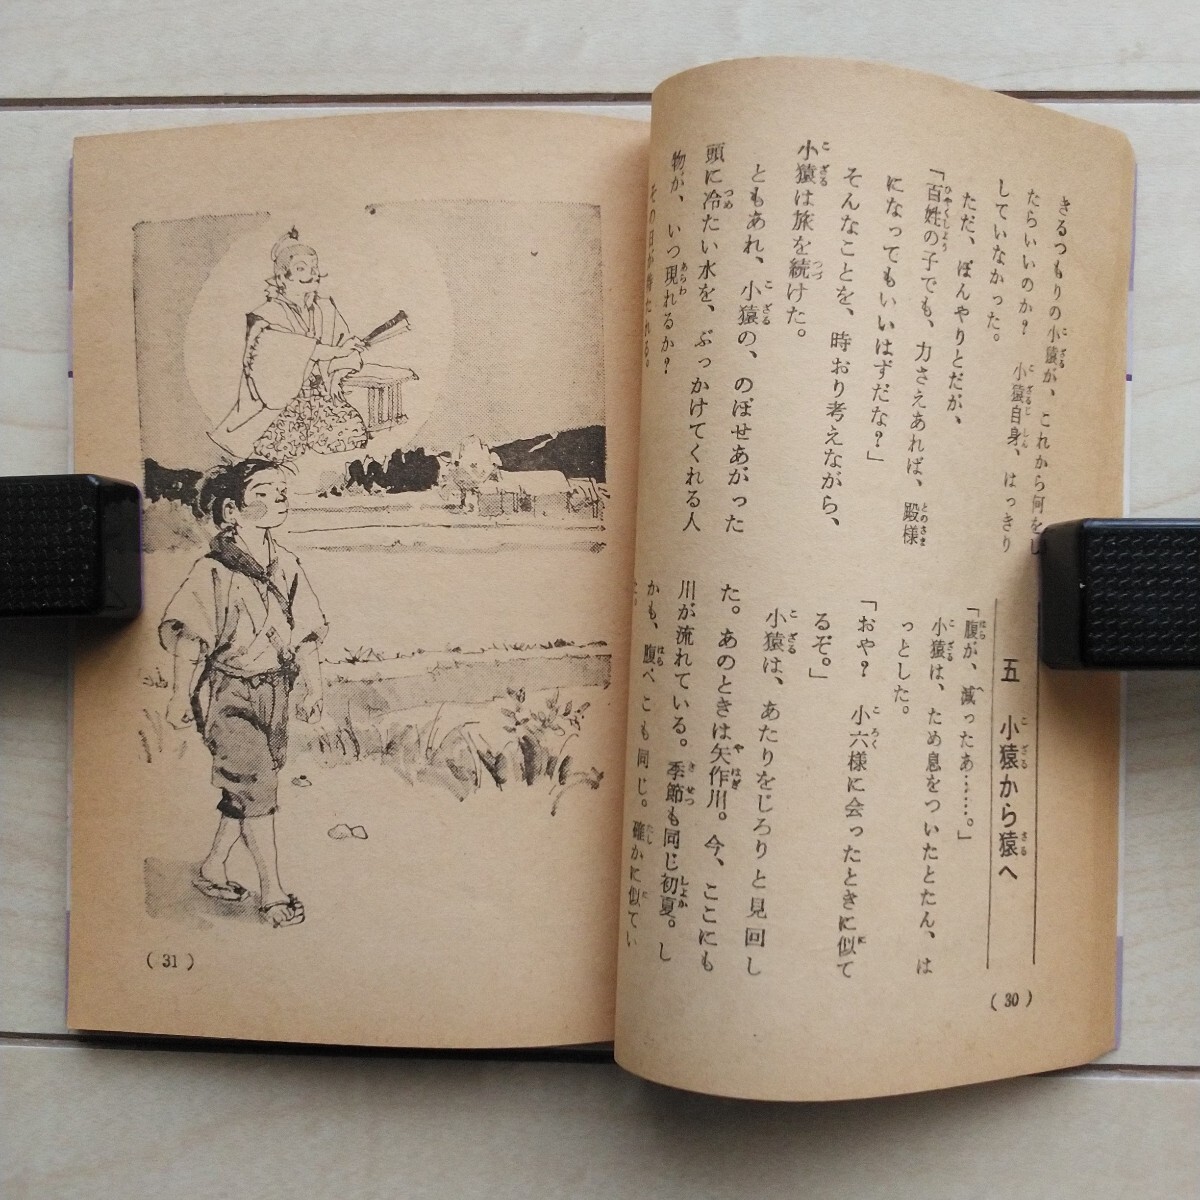 きるつもりの小猿が、これから何をし
たらいいのか？　小猿自身、はっきり
していなかった。
ただ、ぼんやりとだが、
「百姓の子でも、力さえあれば、殿様
になってもいいはずだな？」
そんなことを、時おり考えながら、
小猿は旅を続けた。
ともあれ、小猿の、のぼせあがった
頭に冷たい水を、ぶっかけてくれる人
物が、いつ現れるか？
その日が待たれる。
五　小猿から猿へ
「腹が、減ったあ……。」
小猿は、ため息をついたとたん、は
っとした。
「おや？　小六様に会ったときに似て
るぞ。」
小猿は、あたりをじろりと見回し
た。あのときは矢作川。今、ここにも
川が流れている。季節も同じ初夏。し
かも、腹ぺこも同じ。確かに似てい
(30)
(31)